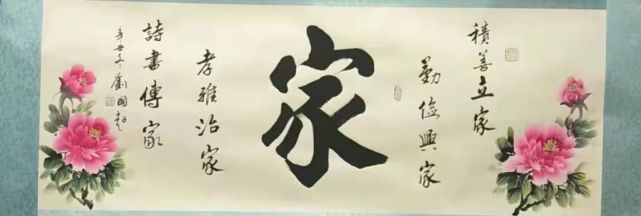 積善立家
勤儉興家
家
孝雅治家
詩書傳家
辛丑年劉國